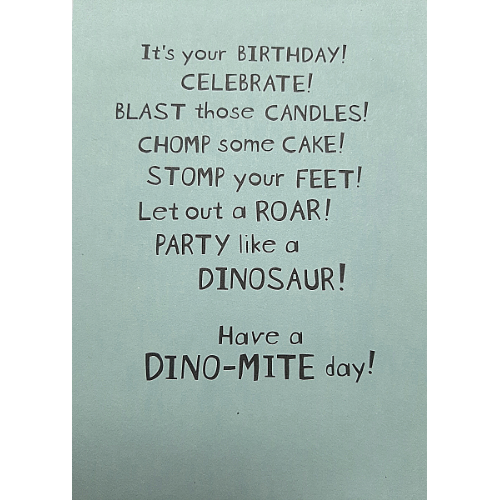 It's your BIRTHDAY!
CELEBRATE!
BLAST those CANDLES!
CHOMP some CAKE!
STOMP your FEET!
Let out a ROAR!
PARTY like a
DINOSAUR!
Have a
DINO-MITE day!